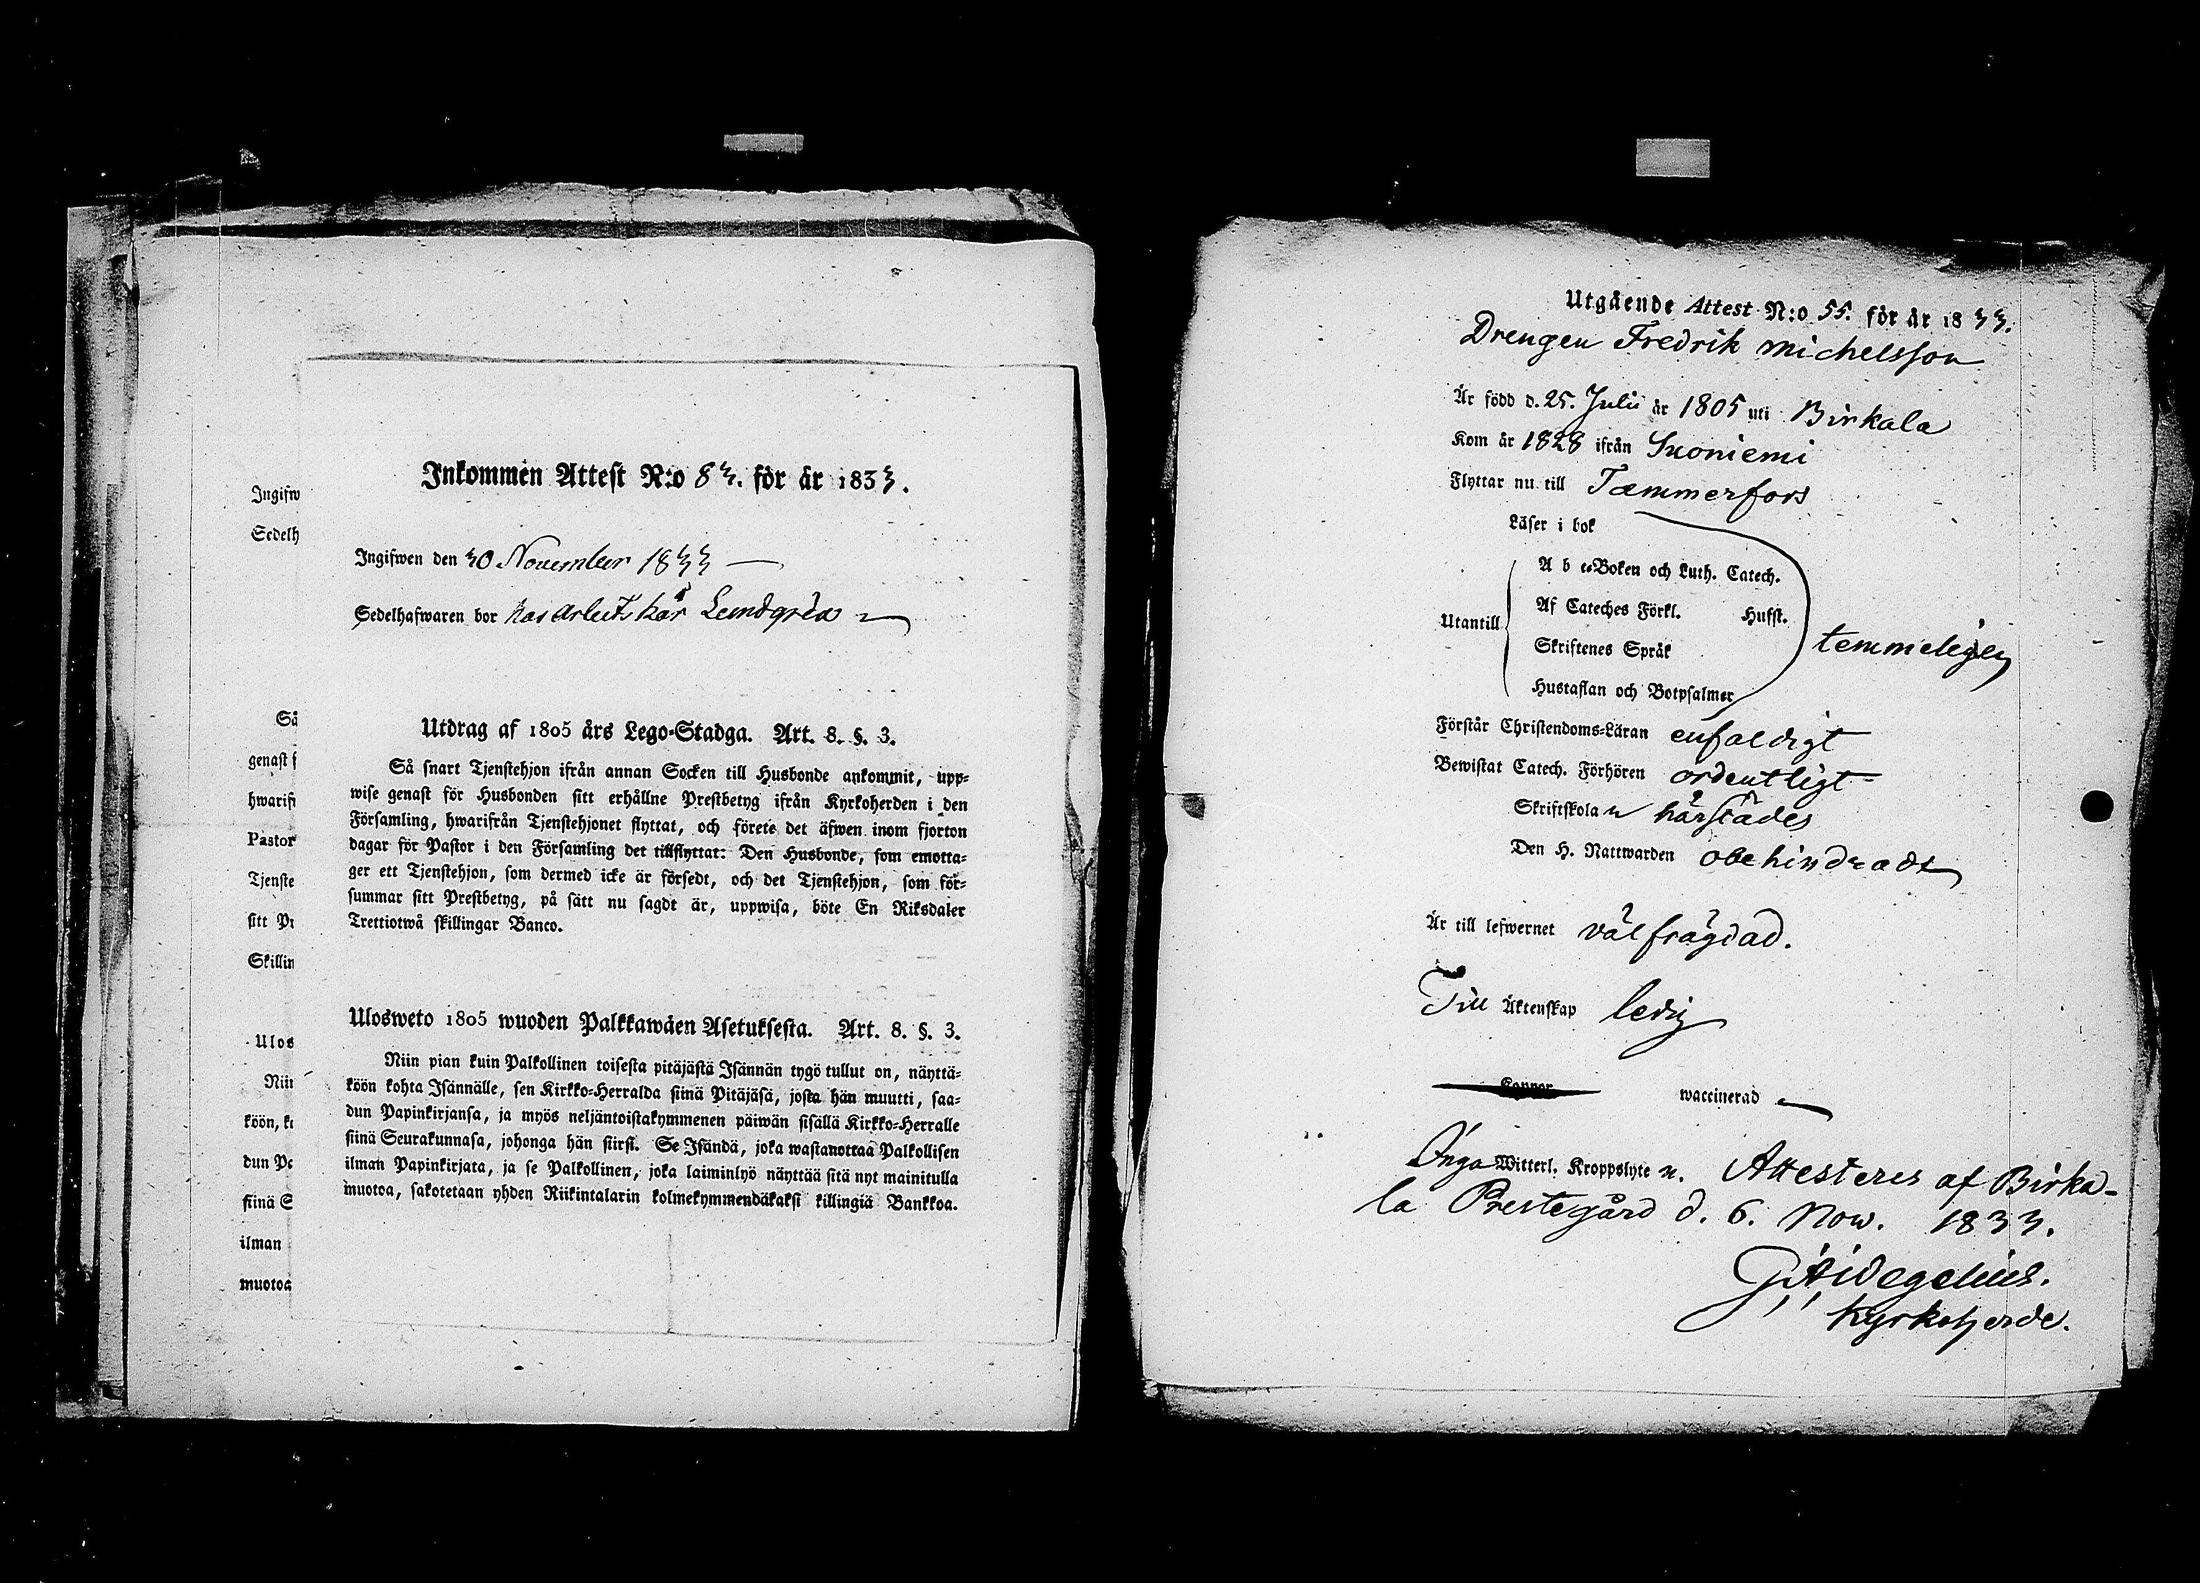 Ingifw
Sedelh
Så
genast f
hwarifr
Pastor
Tjenste
sitt Pr
Skillin
Ulos
Niin
köön, k
dun Pa
siinä S
ilman
muotoa
Inkommen Attest N:o 83. för år 1833.
Ingifwen den 30 November 1833
Sedelhafwaren bor hos Arbets Kar Lundgrén
Utdrag af 1805 års Lego-Stadga. Art. 8. §. 3.
Så snart Tjenstehjon ifrån annan Socken till Husbonde ankommit, upp=
wise genast för Husbonden sitt erhållne Prestbetyg ifrån Kyrkoherden i den
Församling, hwarifrån Tjenstehjonet flyttat, och förete det äfwen inom fjorton
dagar för Pastor i den Församling det tillflyttat: Den Husbonde, som emotta=
ger ett Tjenstehjon, som dermed icke är försedt, och det Tjenstehjon, som för=
summar sitt Prestbetyg, på sätt nu sagdt är, uppwisa, böte En Riksdaler
Trettiotwå skillingar Banco.
Ulosweto 1805 wuoden Palkkawäen Asetuksesta. Art. 8. §. 3.
Niin pian kuin Palkollinen toisesta pitäjästä Isännän tygö tullut on, näyttä=
köön kohta Isännälle, sen Kirkko=Herralda siinä Pitäjäsä, josta hän muutti, saa=
dun Papinkirjansa, ja myös neljäntoistakymmenen päiwän sisällä Kirkko=Herralle
siinä Seurakunnasa, johonga hän siirsi. Se Isändä, joka wastanottaa Palkollisen
ilman Papinkirjata, ja se Palkollinen, joka laiminlyö näyttää sitä nyt mainitulla
muotoa, sakotetaan yhden Riikintalarin kolmekymmendäkaksi killingiä Bankkoa.
Utgående Attest N:o 55. för år 1833.
Drengen Fredrik Michelsson
Är född d. 25. Julii år 1805 uti Birkala
Kom år 1828 ifrån Suoniemi
Flyttar nu till Tammerfors
Läser i bok
A b c=Boken och Luth. Catech.
Utantill Af Cateches Förkl. Husst.
Skriftenes Språk temmeligen
Hustaflan och Botpsalmer
Förstår Christendoms=Läran enfaldigt
Bewistat Catech. Förhören ordentligt
Skriftskolan härstädes
Den H. Nattwarden obehindradt
Är till lefwernet välfrägdad.
Till Äktenskap ledig
Koppor waccinerad
Inga Witterl. Kroppslyte n. Attesteres af Birka-
la Prestegård d. 6. Now. 1833.
Kyrkoherde.